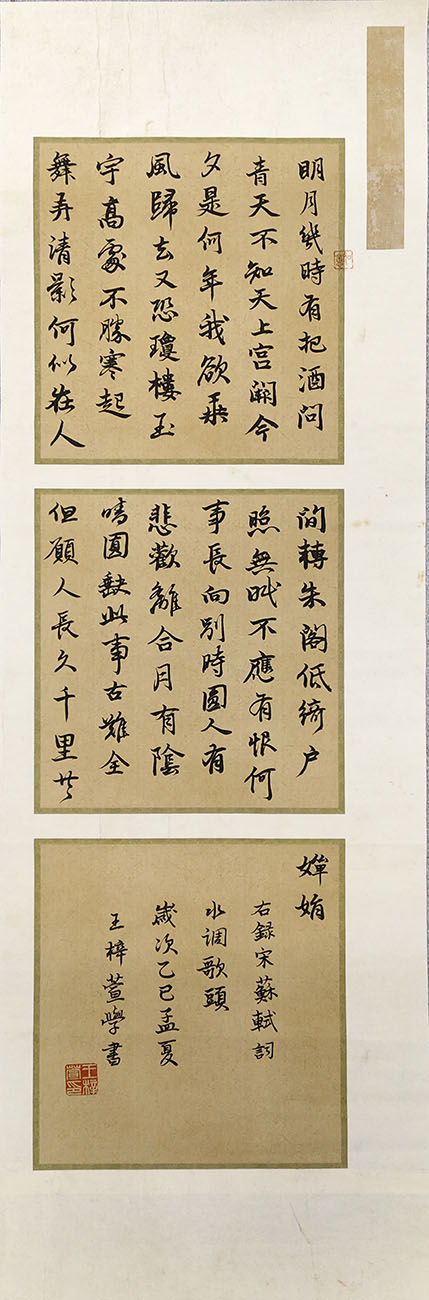 明月幾時有把酒問
青天不知天上宫闕今
夕是何年我欲乘
風歸去又恐瓊樓玉
宇高處不勝寒起
舞弄清影何似在人
間轉朱閣低綺户
照無眠不應有恨何
事長向別時圓人有
悲歡離合月有陰
晴圓缺此事古難全
但願人長久千里共
嬋娟
右録宋蘇軾詞
水調歌頭
歲次乙巳孟夏
王梓萱學書
王梓萱印